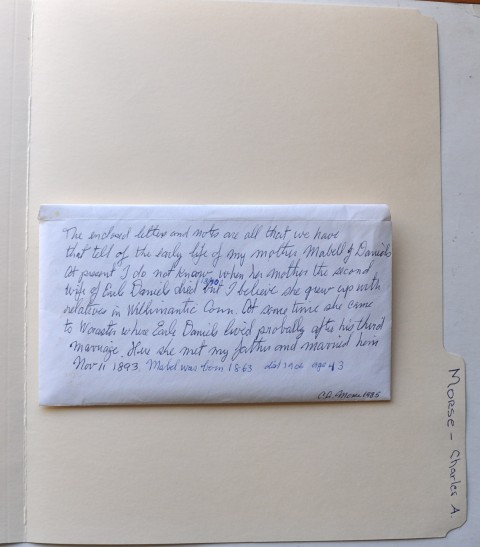 The enclosed letters and notes are all that we have
that tell of the early life of my mother Mabell J Daniels
At present I do not know when her mother the second
wife of Earle Daniels died but I believe she grew up with
relatives in Willimantic Conn. At some time she came
to Worcester where Earle Daniels lived probally after his third
marriage. Here she met my father and married him
Nov 11 1893. Mabel was born 1863 died age 43
C.A. Morse 1985
Morse - Charles A.